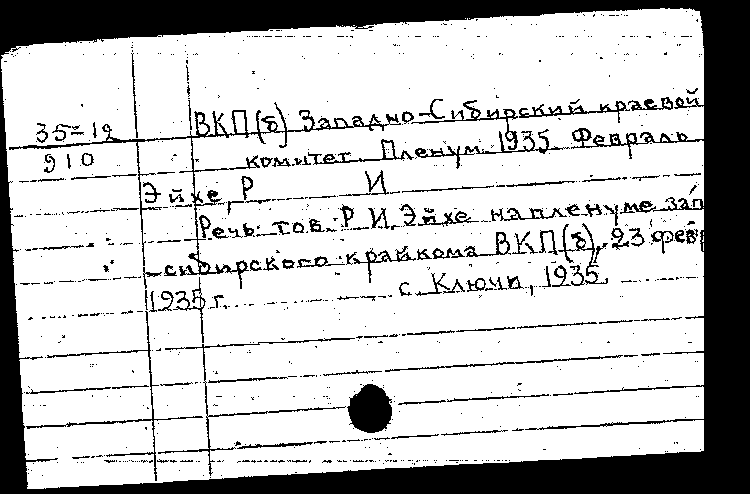 35=12
910
ВКП(б) Западно-Сибирский краевой
комитет. Пленум. 1935. Февраль
Эйхе, Р И
Речь тов. Р. И. Эйхе на пленуме зап
-сибирского крайкома ВКП(б), 23 февр
1935 г. с. Ключи, 1935.